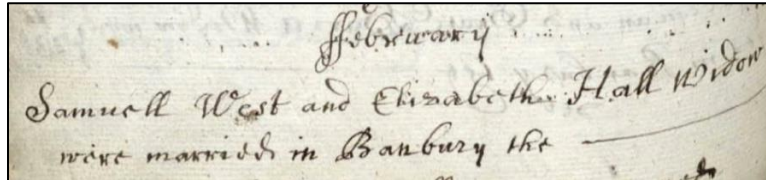 ffebrwarij
Samuell West and Elizabeth Hall Widow
were married in Banbury the